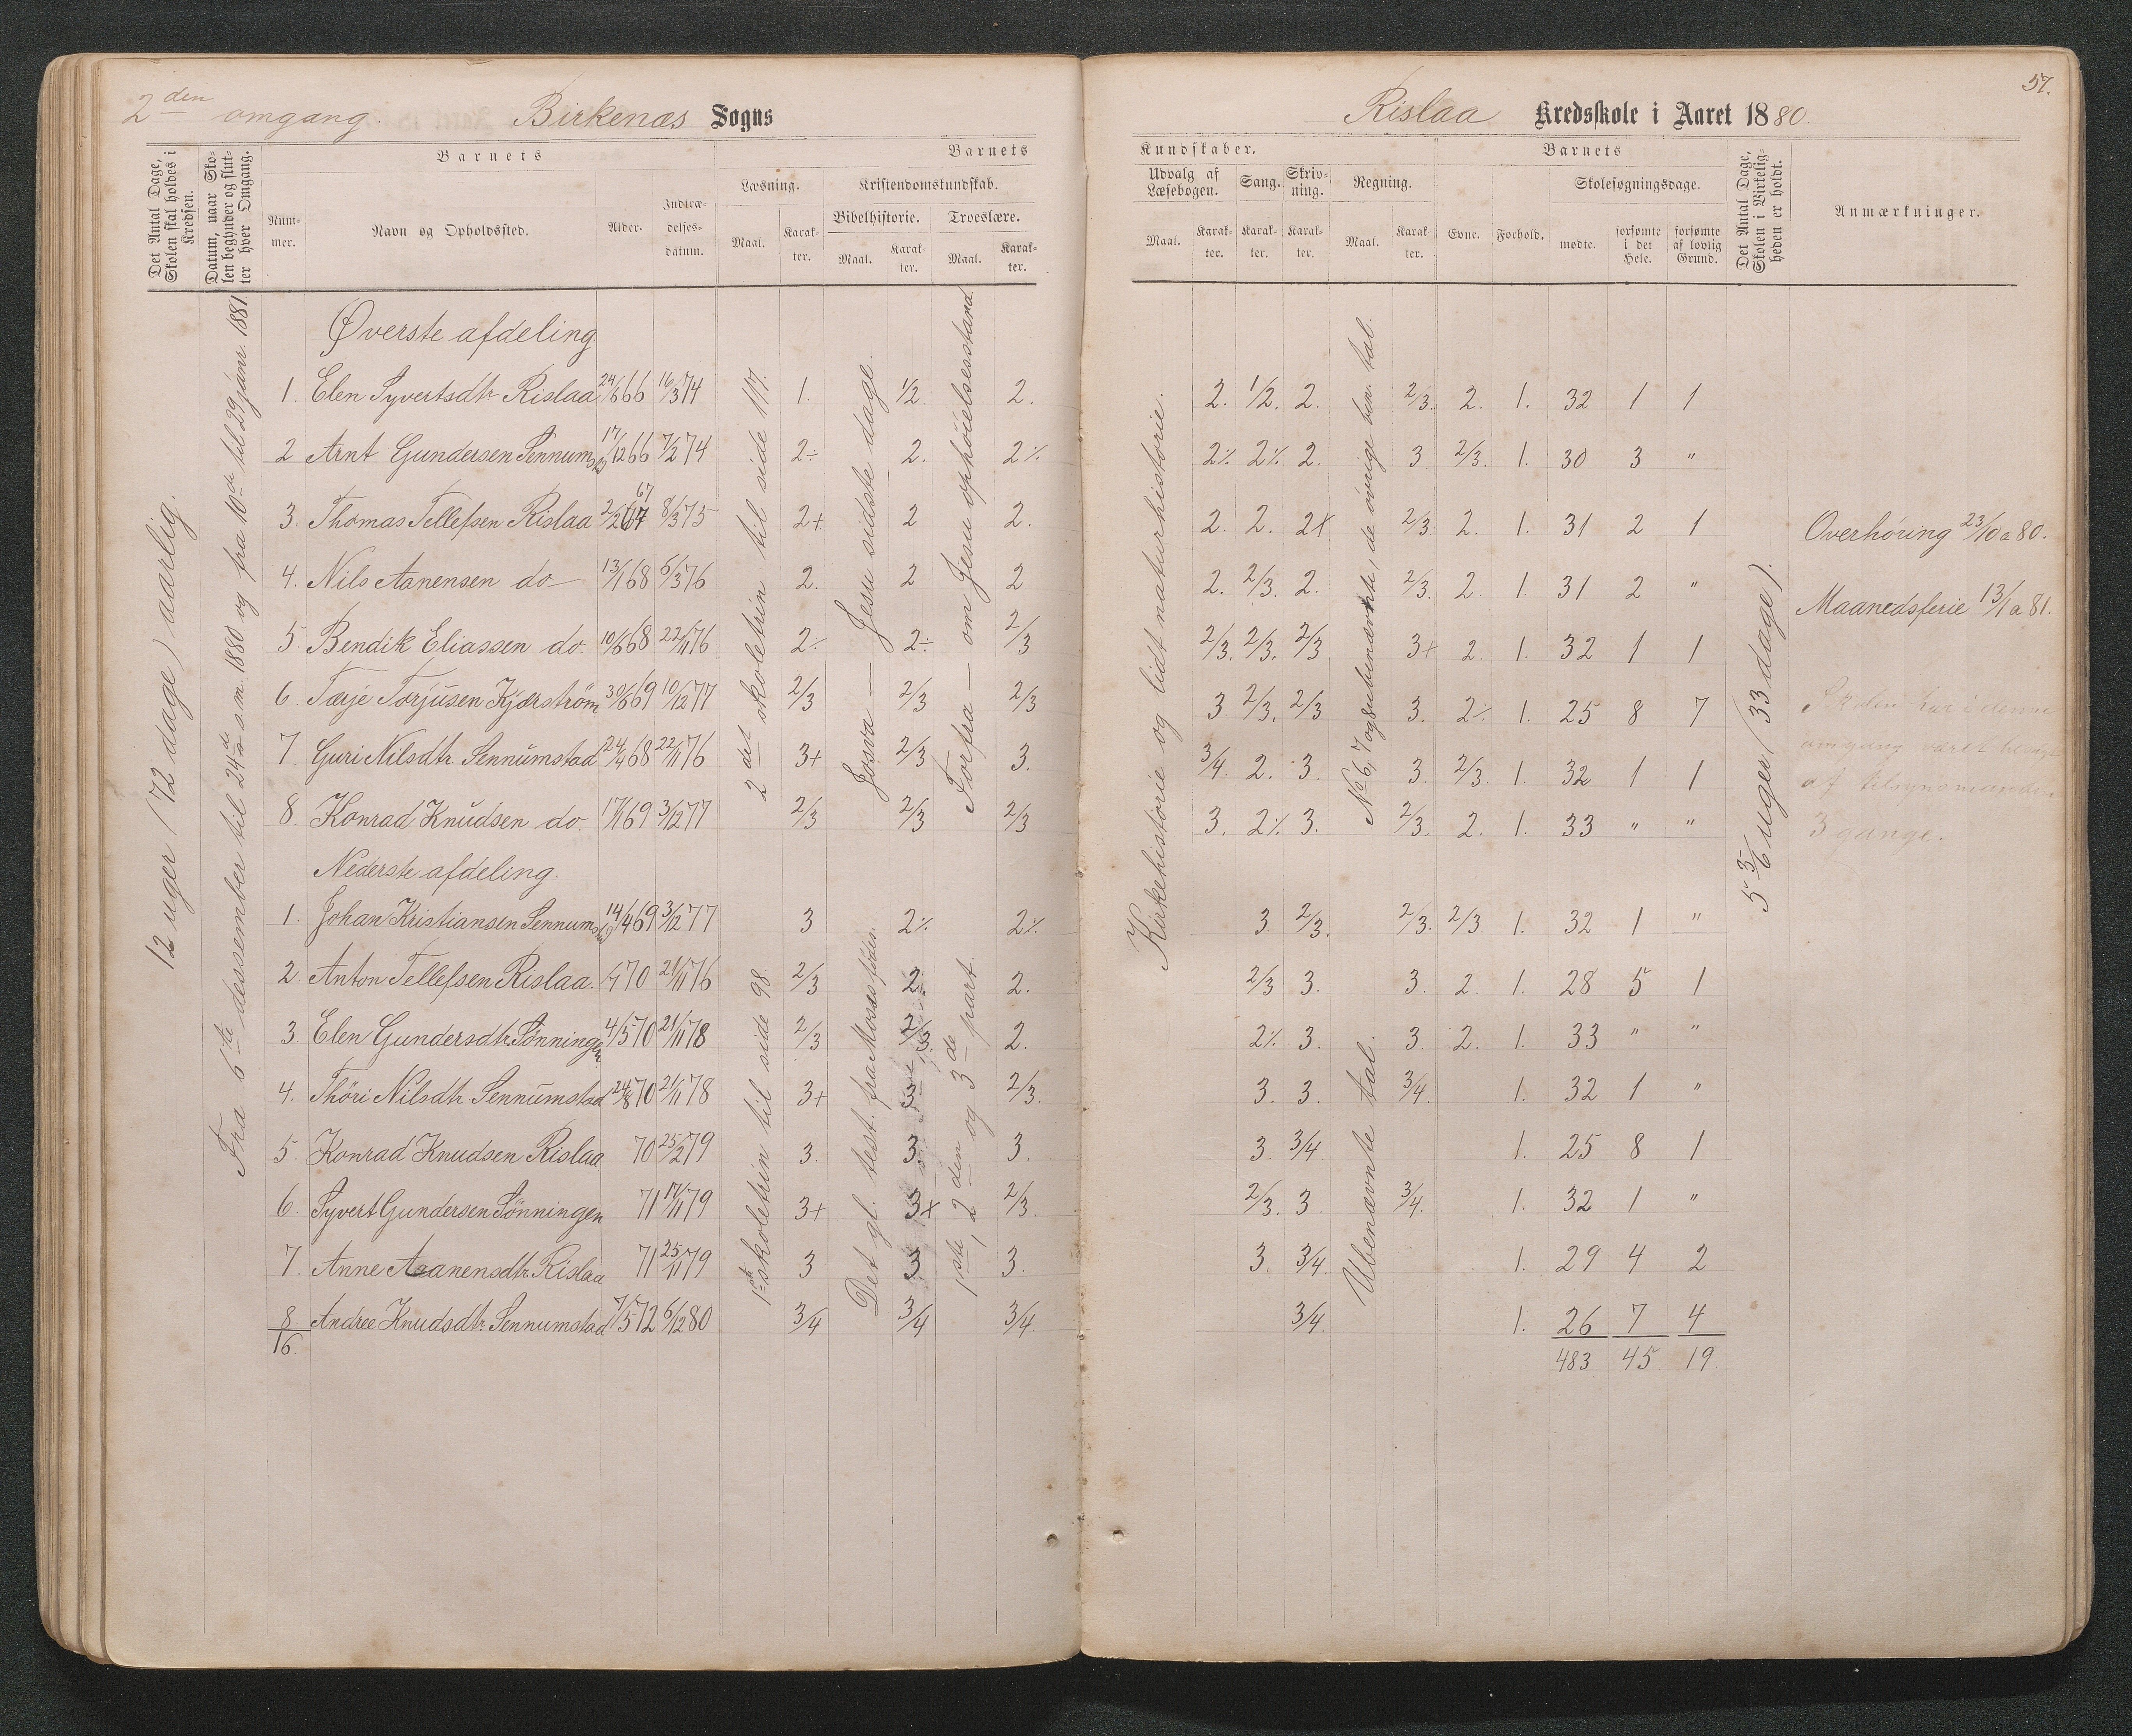 2den omgang. Birkenæs Sogns
Det Antal Dage, Skolen skal holdes i Kredsen.
Datum, naar Skolen begynder og slutter hver Omgang.
Barnets
Nummer.
Navn og Opholdssted.
Alder.
Indtrædelsesdatum.
Barnets
Læsning.
Maal.
Karakter.
Kristendomskundskab.
Bibelhistorie.
Maal.
Karakter.
Troeslære.
Maal.
Karakter.
12 uger (72 dage) aarlig.
Fra 6te dessember til 24de s.m. 1880 og fra 10de til 29 janr. 1881
2det skoletrin til side 117.
Josva — Jesu sidste dage.
Forfra — om Jesu ophöielsesstand.
Øverste afdeling.
1. Elen Syvertsdtr Rislaa 24/6 66 16/3 74 1. 1/2. 2.
2 Arnt Gundersen Sennumstad 17/12 66 7/2 74 2÷ 2. 2%
3. Thomas Tellefsen Rislaa 2/2 67 67 8/3 75 2+ 2 2.
4. Nils Aanensen do 13/1 68 6/3 76 2. 2 2
5. Bendik Eliassen do. 10/6 68 22/11 76 2÷ 2÷ 2/3
6. Tærje Torjusen Kjærström 30/6 69 10/12 77 2/3 2/3 2/3
7. Guri Nilsdtr Sennumstad 24/4 68 22/11 76 3+ 2/3 3.
8. Konrad Knudsen do. 17/1 69 3/12 77 2/3 2/3 2/3
Nederste afdeling.
1ste skoletrin til side 98
Det gl. test. fra Moses
1ste, 2den og 3de part.
1. Johan Kristiansen Sennumstad 14/4 69 3/12 77 3 2% 2%
2 Anton Tellefsen Rislaa. 70 21/11 76 2/3 2. 2.
3 Elen Gundersdtr. Sönningen 4/5 70 21/11 78 2/3 2/3. 2.
4. Thöri Nilsdtr. Sennumstad 24/8 70 21/11 78 3+ 3 2/3.
5. Konrad Knudsen Rislaa 70 25/2 79 3. 3. 3.
6. Syvert Gundersen Sönningen 71 17/11 79 3+ 3+ 2/3.
7. Anne Aanensdtr. Rislaa 71 25/11 79 3 3 3.
8 Andree Knudsdtr. Sennumstad 7/5 72 6/12 80 3/4 3/4 3/4
16.
57.
Rislaa Kredsskole i Aaret 1880.
Kundskaber.
Udvalg af Læsebogen.
Maal.
Karakter.
Sang.
Karakter.
Skrivning.
Karakter.
Regning.
Maal.
Karakter.
Barnets
Evne.
Forhold.
Skolesøgningsdage.
mødte.
forsømte i det Hele.
forsømte af lovlig Grund.
Det Antal Dage, Skolen i Virkeligheden er holdt.
Anmærkninger.
Kirkehistorie og lidt naturhistorie.
No 6, 7 og 8 ubenævnte, de övrige ben. tal.
5 3/6 uger (33 dage).
2. 1/2. 2. 2/3. 2. 1. 32 1 1
2% 2% 2. 3. 2/3. 1. 30 3 "
2. 2. 2+ 2/3 2. 1. 31 2 1
2. 2/3. 2. 2/3. 2. 1. 31 2 "
2/3. 2/3. 2/3 3+ 2. 1. 32 1 1
3 2/3. 2/3 3. 2% 1. 25 8 7
3/4. 2. 3. 3. 2/3. 1. 32 1 1
3. 2% 3. 2/3. 2. 1. 33 " "
Overhöring 23/10 a 80.
Maanedsferie 13/1 a 81.
Skolen har i denne
omgang været besögt
af tilsynsmanden
3 gange.
Ubenævnte tal.
3 2/3. 2/3. 2/3 1. 32 1 "
2/3 3. 3. 2. 1. 28 5 1
2% 3. 3. 2. 1. 33 " "
3. 3. 3/4. 1. 32 1 "
3. 3/4. 1. 25 8 1
2/3. 3. 3/4. 1. 32 1 "
3. 3/4. 1. 29 4 2
3/4. 1. 26 7 4
483 45 19.